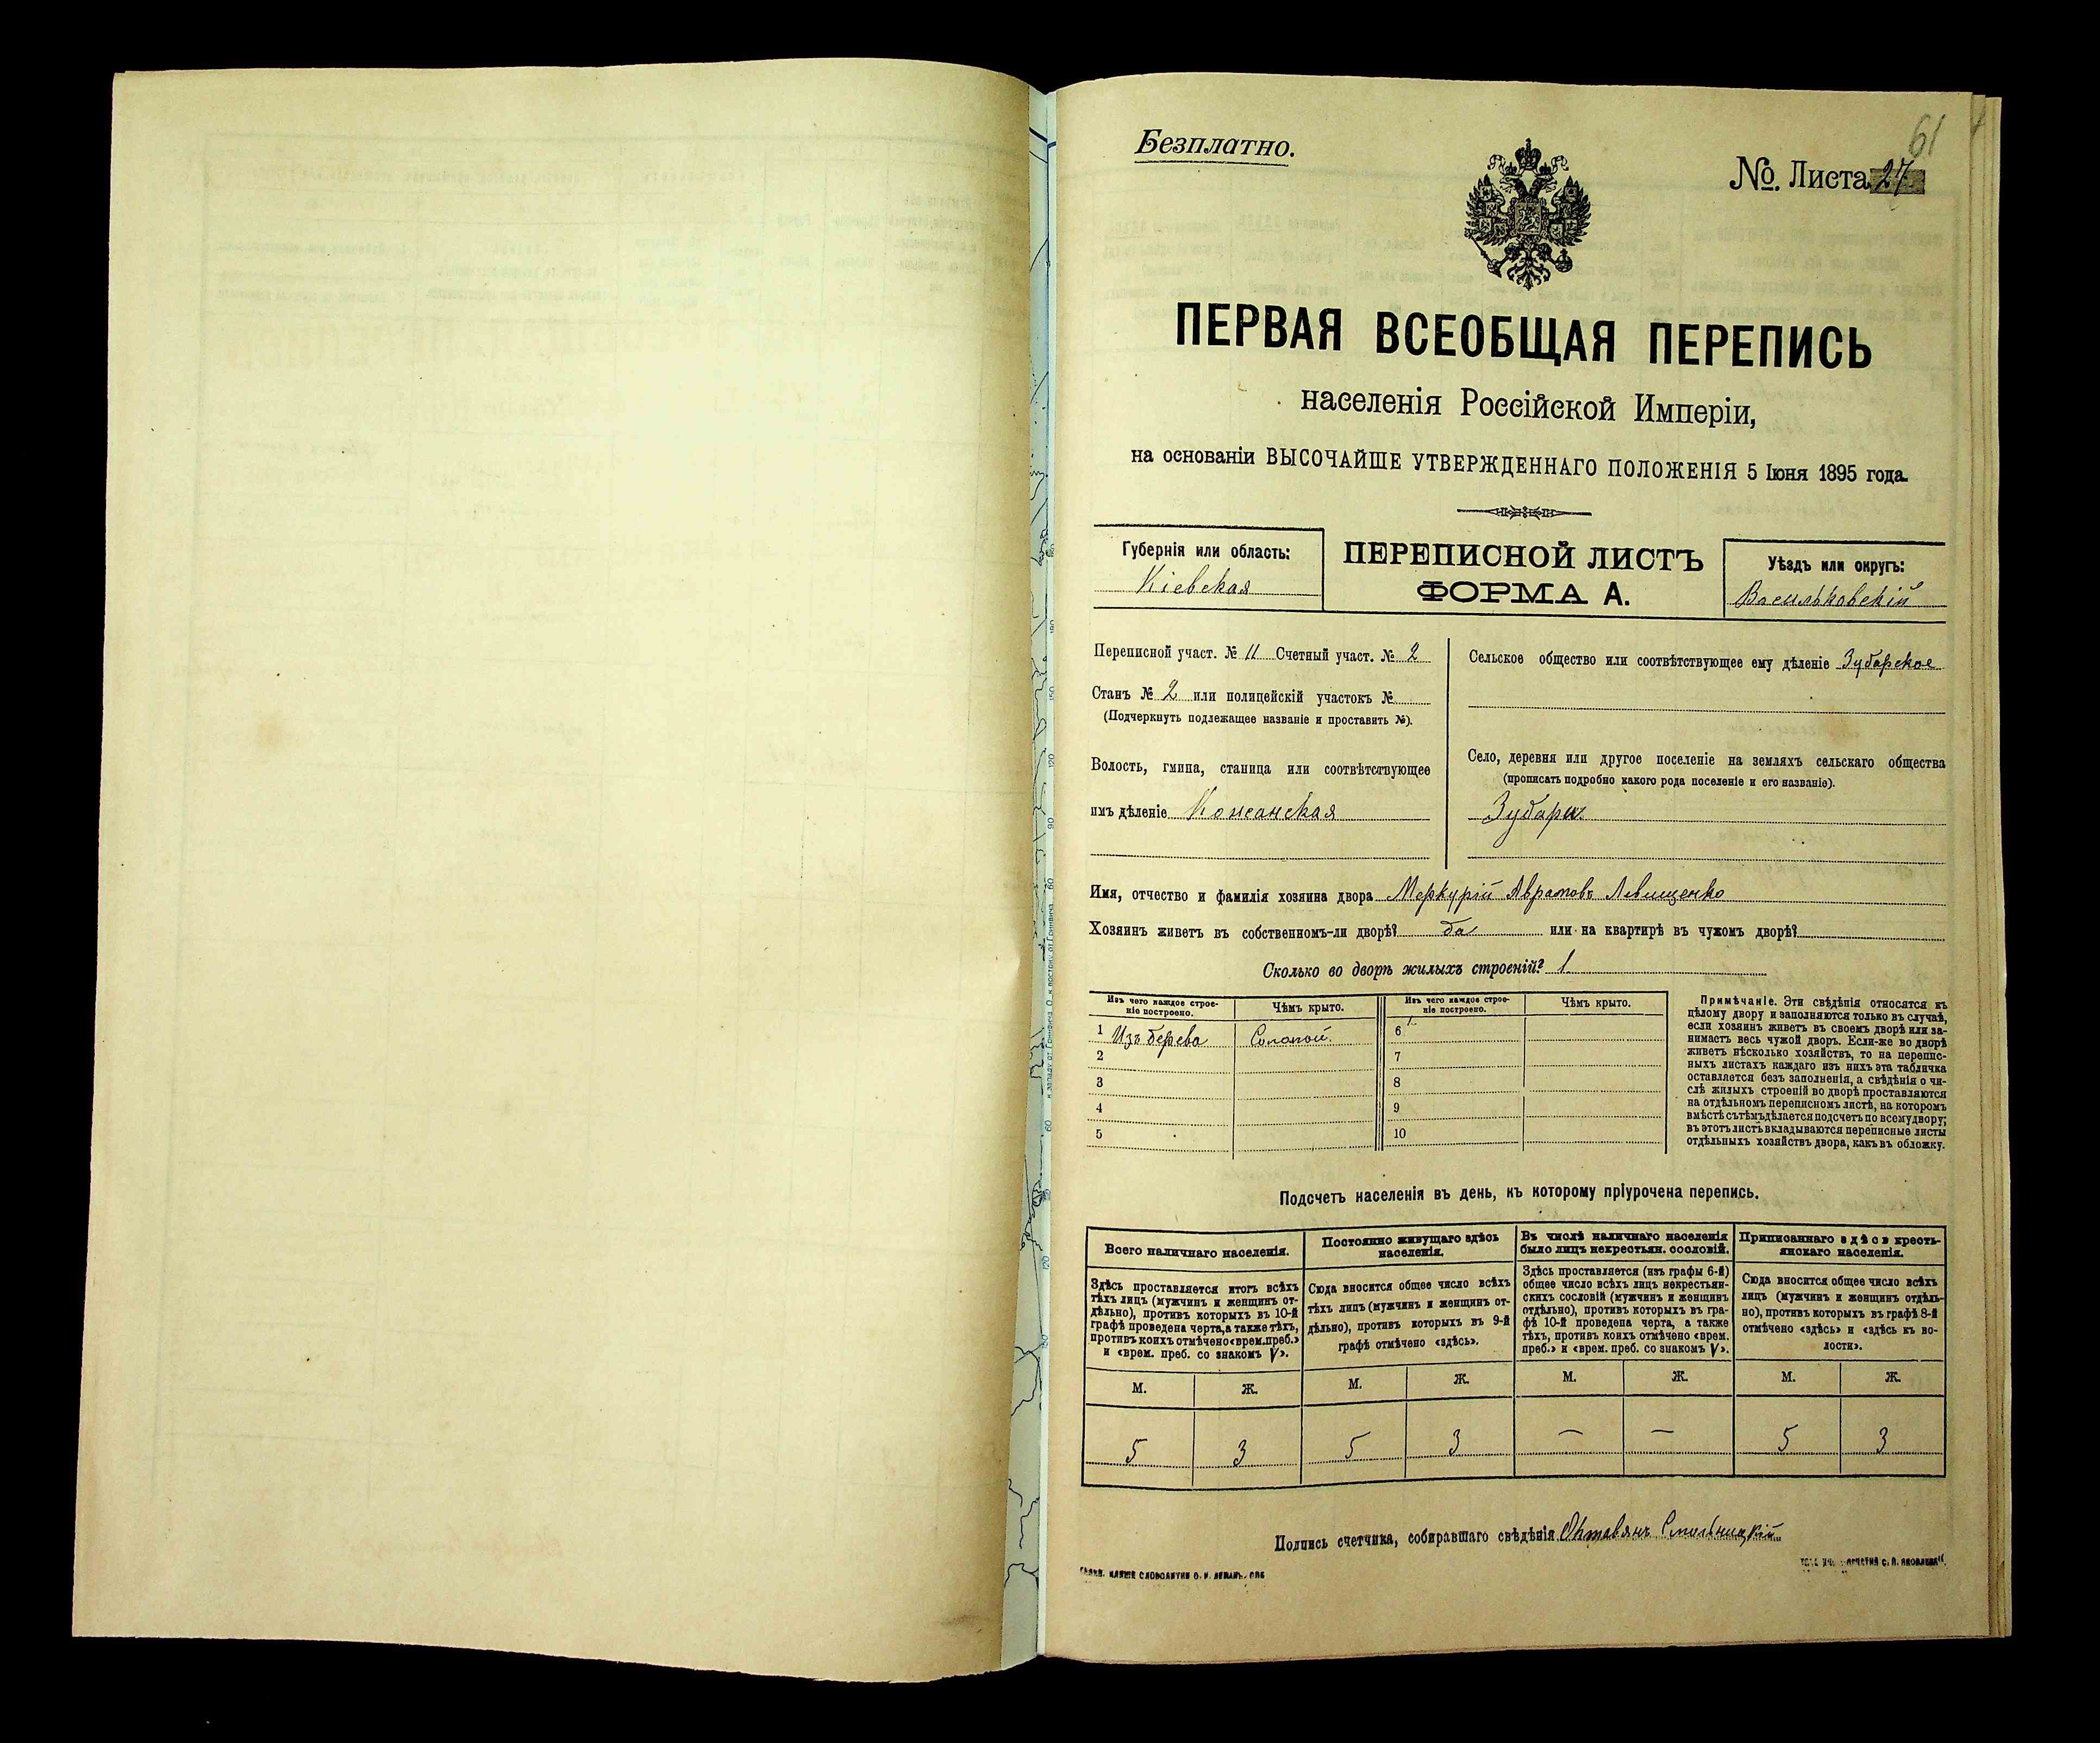 61
Безплатно.
№. Листа 27
ПЕРВАЯ ВСЕОБЩАЯ ПЕРЕПИСЬ
населенія Россійской Имперіи,
на основаніи ВЫСОЧАЙШЕ УТВЕРЖДЕННАГО ПОЛОЖЕНІЯ 5 Іюня 1895 года.
Губернія или область:
Кіевская
ПЕРЕПИСНОЙ ЛИСТЪ
ФОРМА А.
Уѣздъ или округъ:
Васильковскій
Переписной участ. № 11 Счетный участ. № 2
Станъ № 2 или полицейскій участокъ №
(Подчеркнуть подлежащее названіе и проставить №).
Волость, гмина, станица или соотвѣтствующее
имъ дѣленіе Кожанская
Сельское общество или соотвѣтствующее ему дѣленіе Зубарское
Село, деревня или другое поселеніе на земляхъ сельскаго общества
(прописать подробно какого рода поселеніе и его названіе).
Зубари
Имя, отчество и фамилія хозяина двора Меркурій Аврамовъ Левищенко
Хозяинъ живетъ въ собственномъ-ли дворѣ? да или на квартирѣ въ чужомъ дворѣ?
Сколько во дворѣ жилыхъ строеній? 1
Изъ чего каждое строе-
ніе построено.
Чѣмъ крыто.
Изъ чего каждое строе-
ніе построено.
Чѣмъ крыто.
1 Изъ дерева Соломой. 6
2 7
3 8
4 9
5 10
Примѣчаніе. Эти свѣдѣнія относятся къ
цѣлому двору и заполняются только въ случаѣ,
если хозяинъ живетъ въ своемъ дворѣ или за-
нимаетъ весь чужой дворъ. Если-же во дворѣ
живетъ нѣсколько хозяйствъ, то на перепис-
ныхъ листахъ каждаго изъ нихъ эта табличка
оставляется безъ заполненія, а свѣдѣнія о чи-
слѣ жилыхъ строеній во дворѣ проставляются
на отдѣльномъ переписномъ листѣ, на которомъ
вмѣстѣ съ тѣмъ дѣлается подсчетъ по всему двору;
въ этотъ листъ вкладываются переписные листы
отдѣльныхъ хозяйствъ двора, какъ въ обложку.
Подсчетъ населенія въ день, къ которому пріурочена перепись.
Всего наличнаго населенія.
Здѣсь проставляется итогъ всѣхъ
тѣхъ лицъ (мужчинъ и женщинъ от-
дѣльно), противъ которыхъ въ 10-й
графѣ проведена черта, а также тѣхъ,
противъ коихъ отмѣчено «врем. преб.»
и «врем. преб. со знакомъ V».
Постоянно живущаго здѣсь
населенія.
Сюда вносится общее число всѣхъ
тѣхъ лицъ (мужчинъ и женщинъ от-
дѣльно), противъ которыхъ въ 9-й
графѣ отмѣчено «здѣсь».
Въ числѣ наличнаго населенія
было лицъ некрестьян. сословій.
Здѣсь проставляется (изъ графы 6-й)
общее число всѣхъ лицъ некрестьян-
скихъ сословій (мужчинъ и женщинъ
отдѣльно), противъ которыхъ въ гра-
фѣ 10-й проведена черта, а также
тѣхъ, противъ коихъ отмѣчено «врем.
преб.» и «врем. преб. со знакомъ V».
Приписаннаго здѣсь кресть-
янскаго населенія.
Сюда вносится общее число всѣхъ
лицъ (мужчинъ и женщинъ отдѣль-
но), противъ которыхъ въ графѣ 8-й
отмѣчено «здѣсь» и «здѣсь къ во-
лости».
М. Ж. М. Ж. М. Ж. М. Ж.
5 3 5 3 — — 5 3
Подпись счетчика, собиравшаго свѣдѣнія Октавянъ Смольницкій